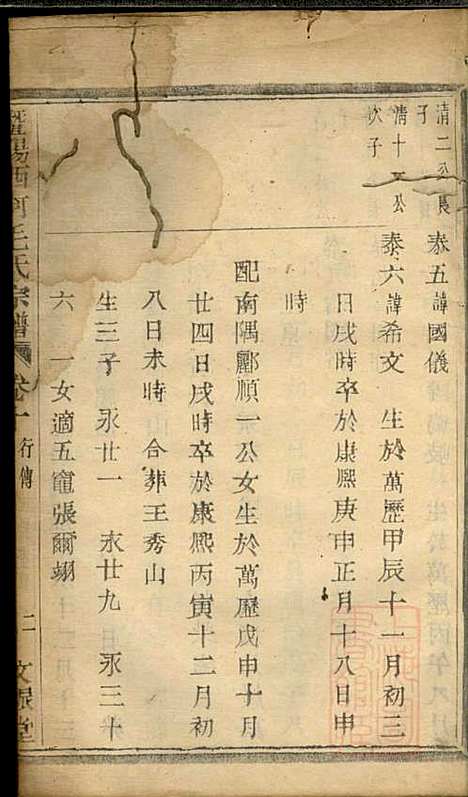 清二公長子
泰五諱國儀
清十公次子
泰六諱希文 生於萬歷甲辰十一月初三
日戌時卒於康熙庚申正月十八日申
時
配南隅酈順一公女生於萬歷戊申十月
廿四日戌時卒於康熙丙寅十二月初
八日未時合葬王秀山
生三子 永廿一 永廿九 永三十
六 一女適五竈張爾翊
暨陽西河毛氏宗譜 卷一 行傳 二